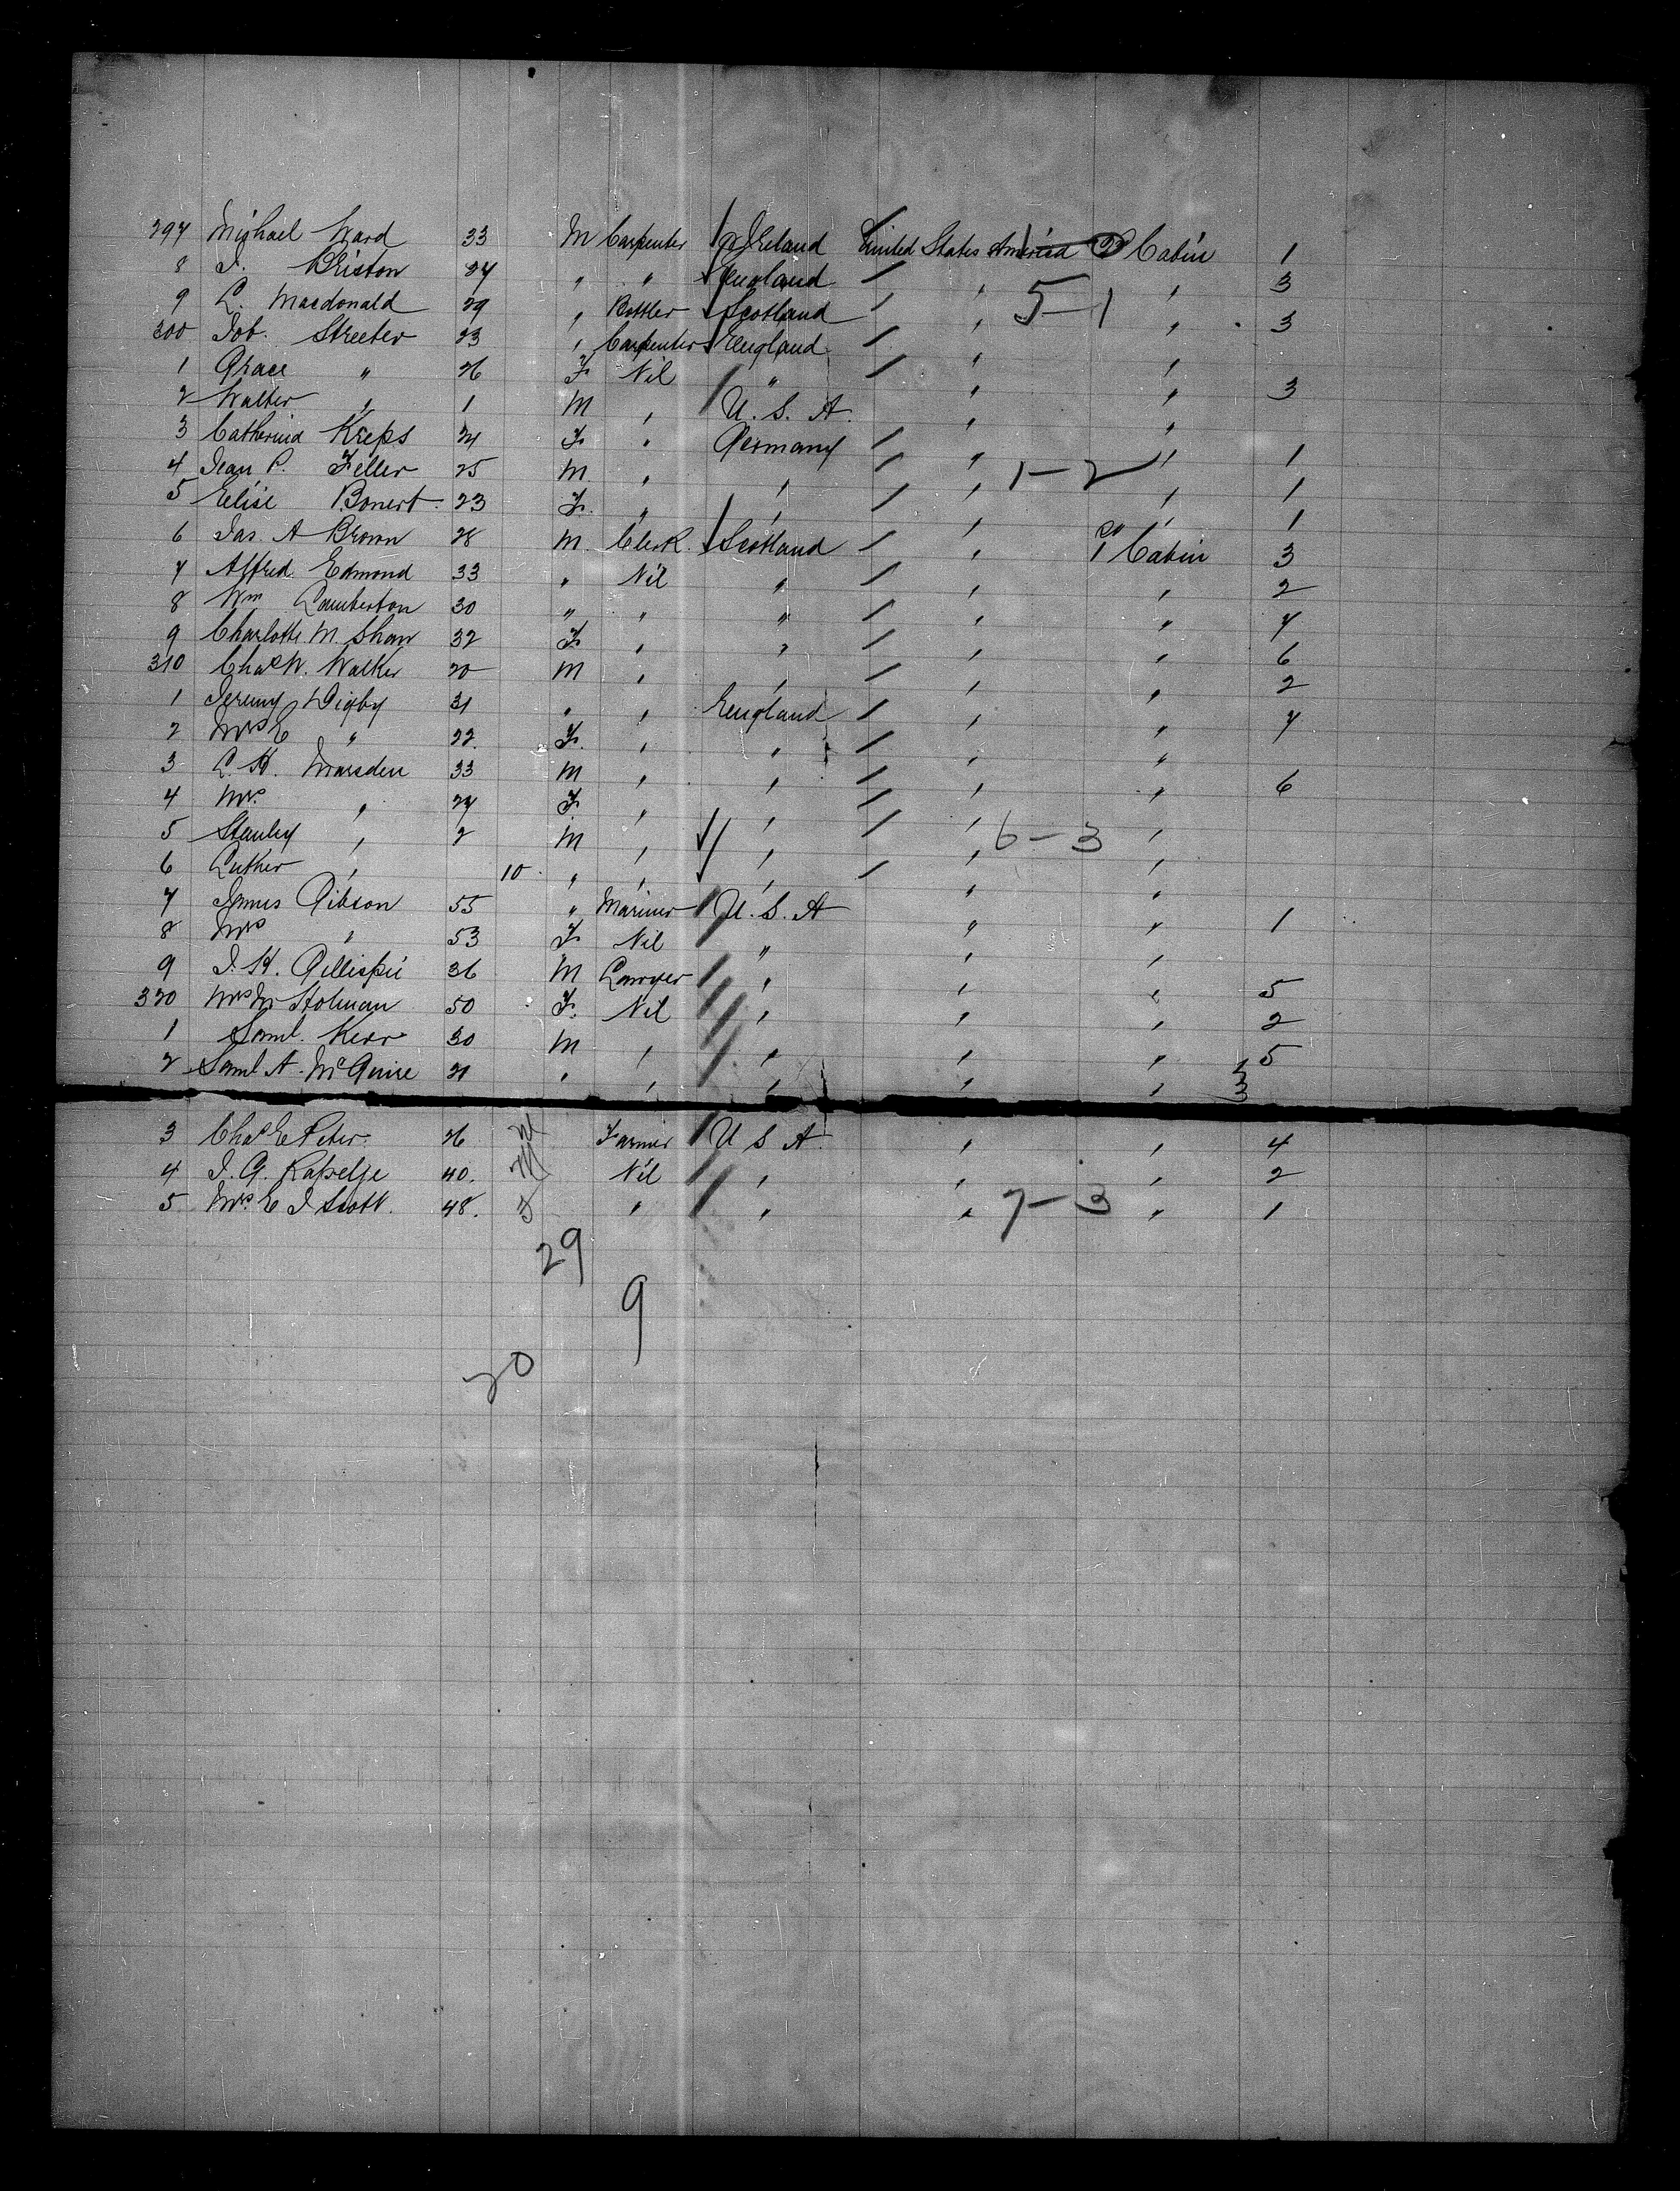 297 Michael Ward 33 M Carpenter Ireland United States America 2d Cabin 1
8 J. Briston 24 " " England " " 3
9 L. Macdonald 29 " Bottler Scotland " " 3
5-1
300 Job. Streeter 23 " Carpenter England " "
1 Grace " 26 F Nil " " " 3
2 Walter " 1 M " U. S. A. " "
3 Catherina Kreps 24 F " Germany " " 1
4 Jean P. Feller 25 M. " " " " 1
1-2
5 Elise Bonert 23 F. " " " " 1
6 Jas. A Brown 28 M. Clerk Scotland " 1st Cabin 3
7 Alfred Edmond 33 " Nil " " " 2
8 Wm Lamberton 30 " " " " " 7
9 Charlotte M. Shaw 32 F. " " " " 6
310 Chas W. Walker 20 M " " " " 2
1 Jeremy Digby 31 " " England " " 7
2 Mrs E " 22 F. " " " "
3 L. K. Marsden 33 M " " " " 6
4 Mrs. " 27 F. " " " "
5 Stanley " 2 M " " " "
6-3
6 Luther " 10 " " " " "
7 James Gibson 55 " Mariner U. S. A " " 1
8 Mrs " 53 F Nil " " "
9 J. H. Gillispie 36 M Lawyer " " " 5
320 Mrs M Holman 50 F. Nil " " " 2
1 Saml. Kerr 30 M " " " " 5
2 Saml A. McGuire 21 " " " " " 3
3 Chas E Peter 26 M Farmer U S A " " 4
4 J. G. Rapelje 40. M Nil " " " 2
5 Mrs. E J Scott. 48. F " " " " 1
7-3
29
9
20